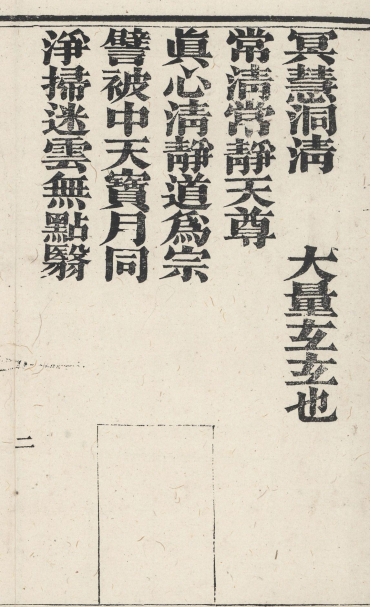 冥慧洞清　大量玄玄也
常清常靜天尊
眞心清靜道爲宗
譬被中天寶月同
淨掃迷雲無點翳
二